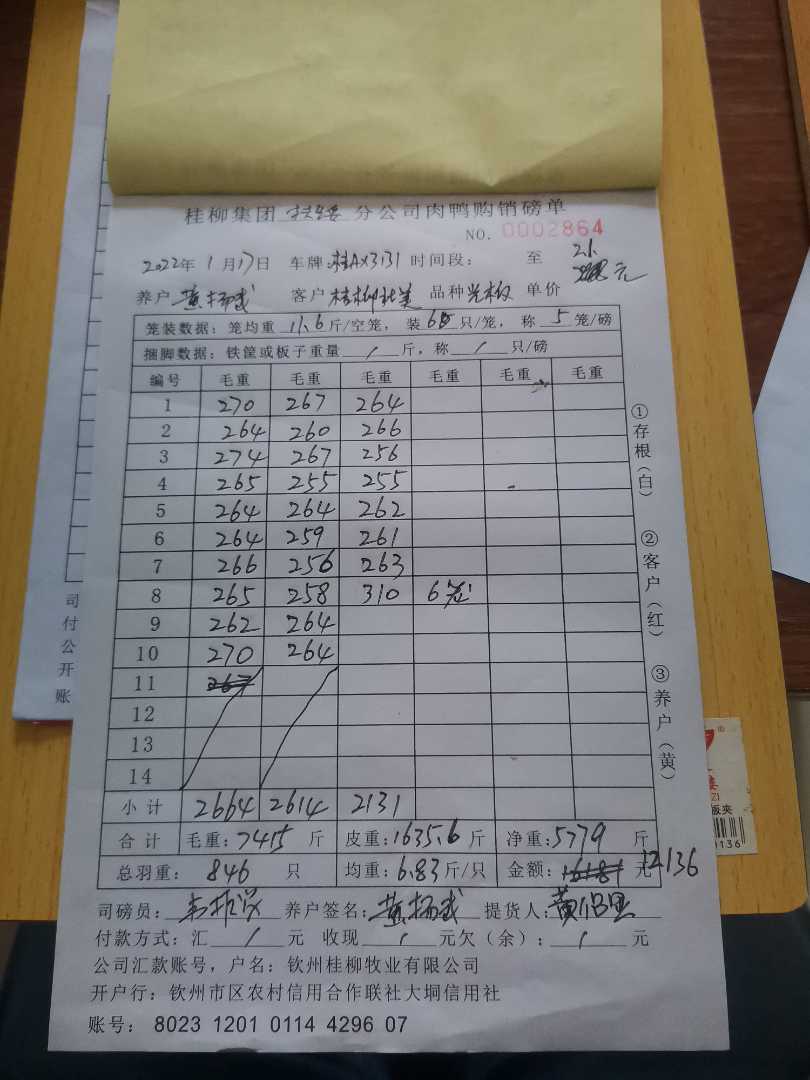 桂柳集团 扶绥 分公司肉鸭购销磅单
NO. 0002864
2022年 1月17日 车牌:桂AX3131 时间段: 至
养户 黄杨武 客户 桂柳 品种 光板 单价 2.1 元
笼装数据:笼均重 11.6 斤/空笼,装 只/笼,称 5 笼/磅
捆脚数据:铁筐或板子重量 / 斤,称 / 只/磅
编号 毛重 毛重 毛重 毛重 毛重 毛重
1 270 267 264
2 264 260 266
3 274 267 256
4 265 255 255
5 264 264 262
6 264 259 261
7 266 256 263
8 265 258 310 6笼
9 262 264
10 270 264
11 267
12
13
14
小计 2664 2614 2131
合计 毛重:7415 斤 皮重:1635.6 斤 净重:5779 斤
总羽重: 846 只 均重:6.83斤/只 金额: 元 12136
司磅员: 养户签名:黄杨武 提货人:
付款方式:汇 / 元 收现 / 元欠(余): / 元
公司汇款账号,户名:钦州桂柳牧业有限公司
开户行:钦州市区农村信用合作联社大垌信用社
账号: 8023 1201 0114 4296 07
①存根(白)
②客户(红)
③养户(黄)
司
付
公
开
账
板夹
0136